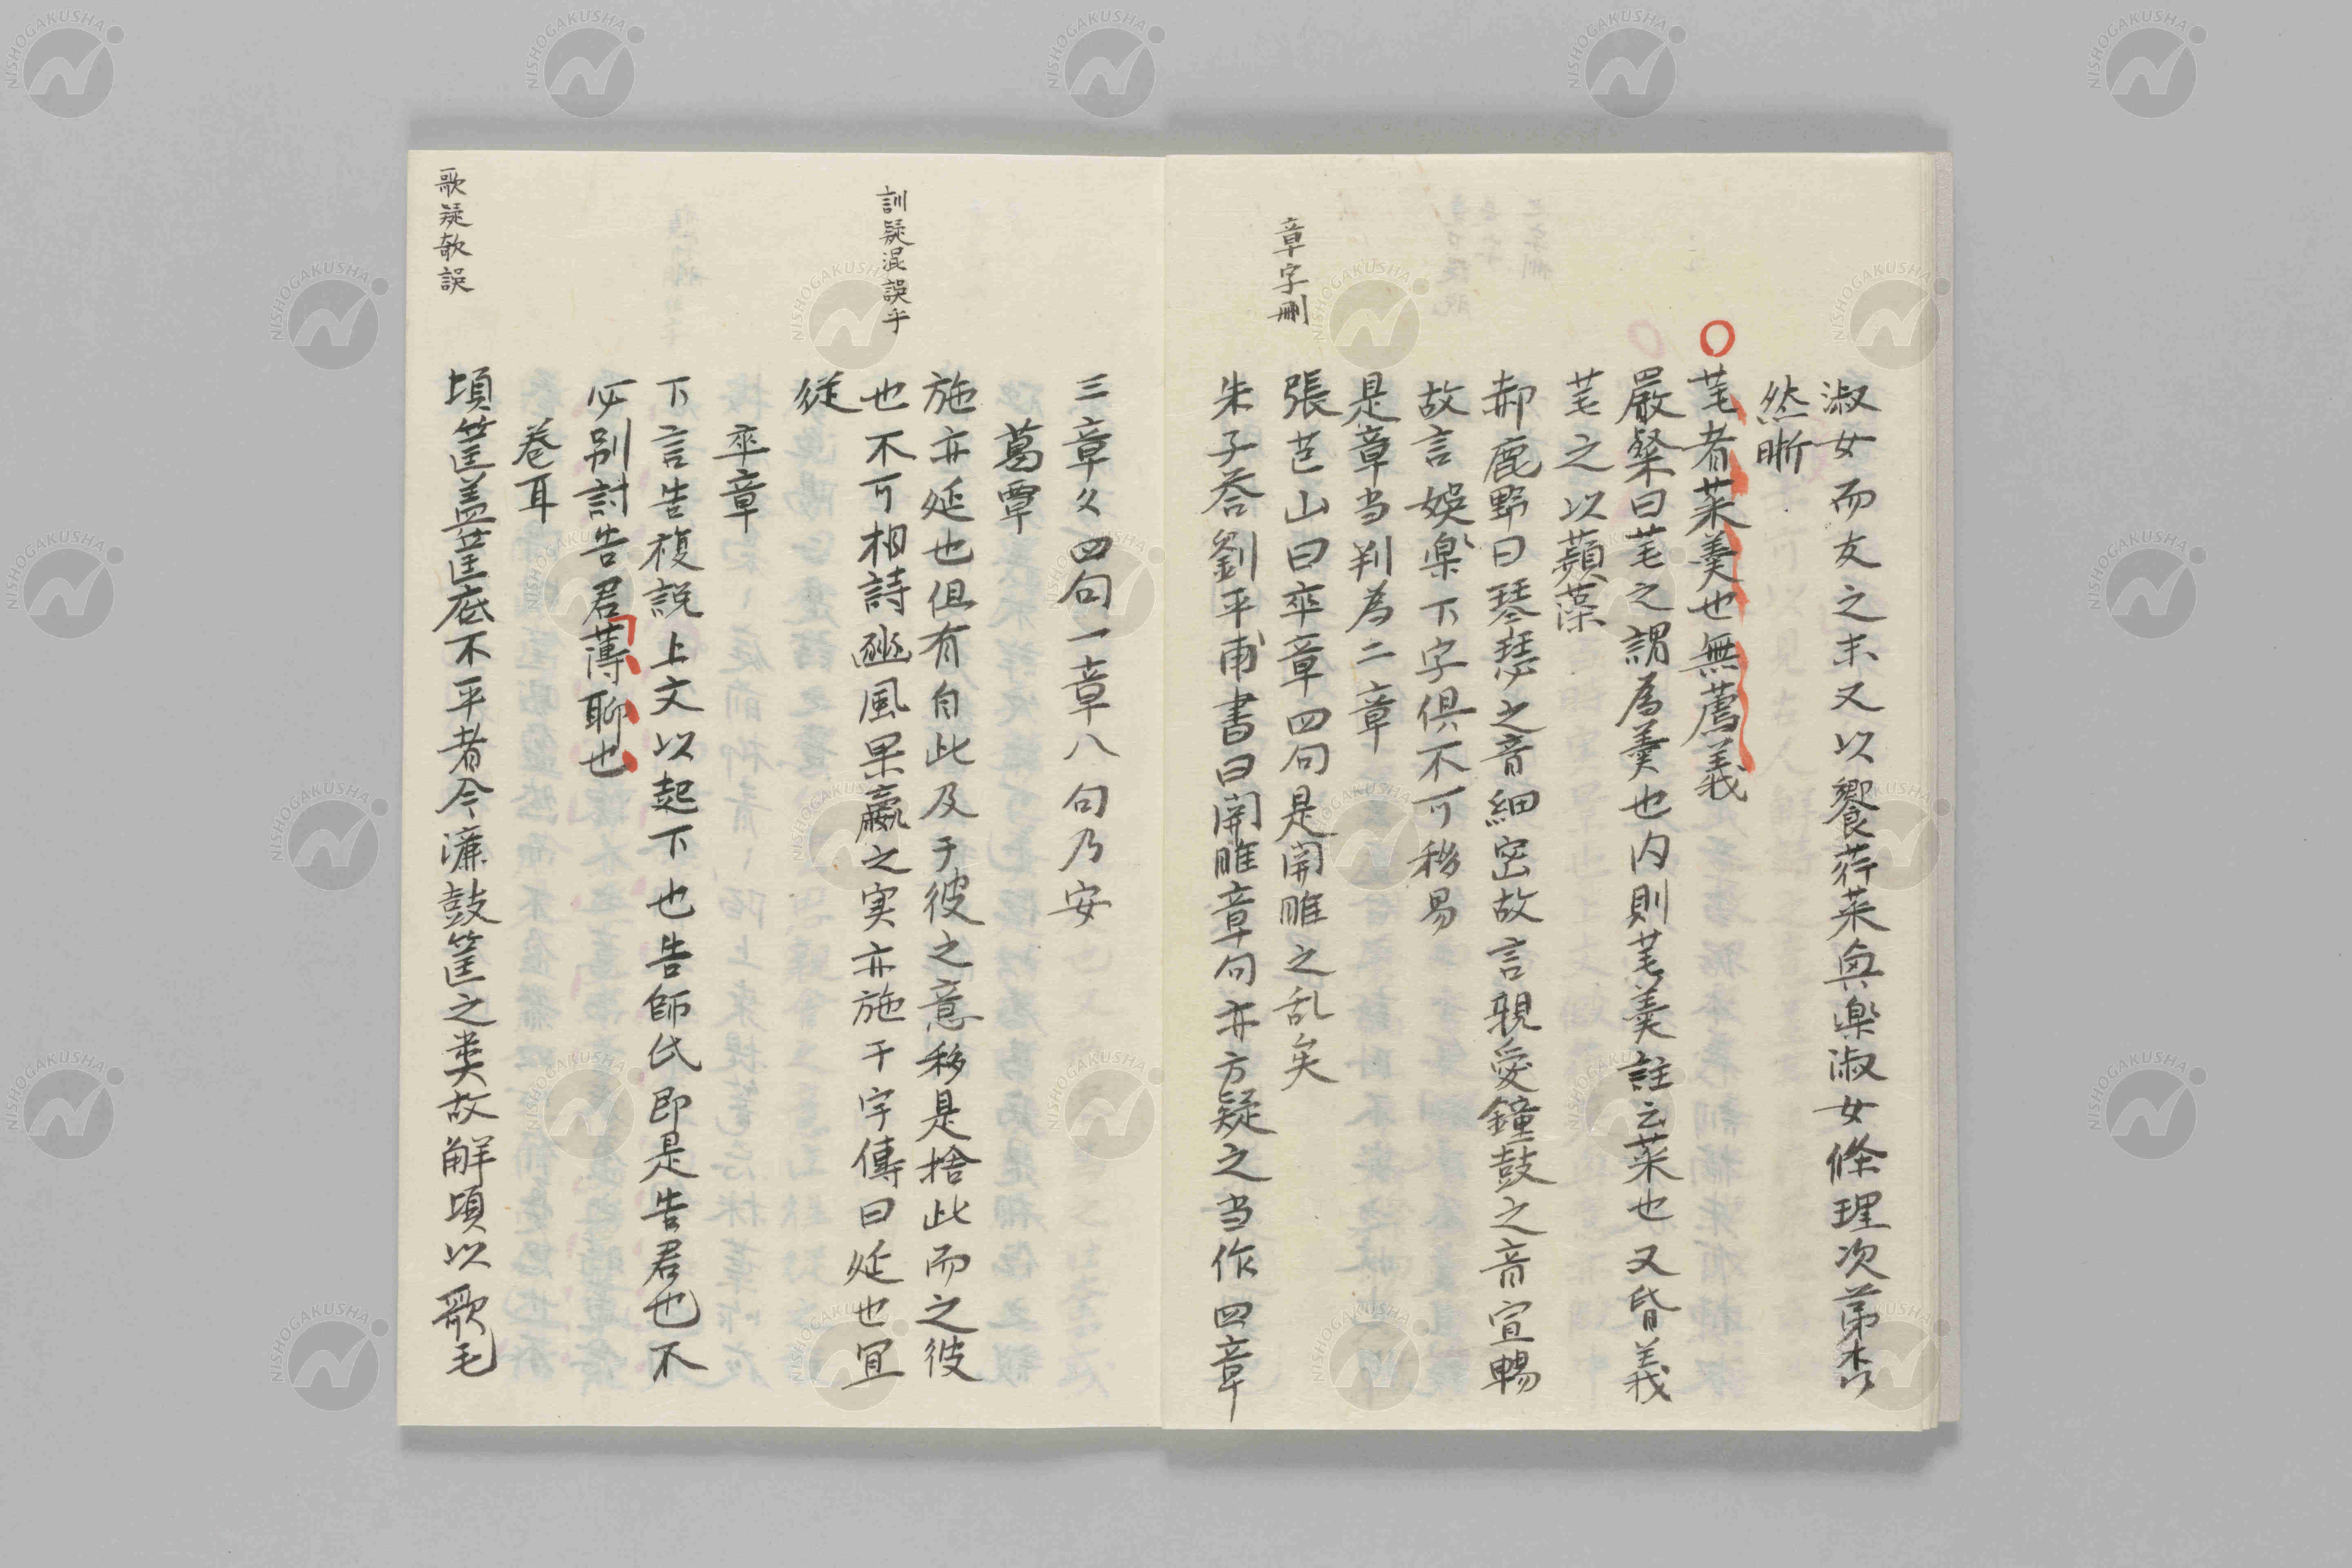 淑女而友之末又以饗荇菜與楽淑女條理次第
然晣
芼者菜羹也無薦義
嚴粲曰芼之謂為羹也内則芼羹註云菜也又昏義
芼之以蘋藻
郝鹿野曰琴瑟之音細密故言親愛鐘鼓之音宣暢
故言娯楽下字倶不可移易
是章当判為二章
章字刪
張芑山曰卒章四句是関雎之乱矣
朱子荅劉平甫書曰関雎章句亦方疑之当作四章
三章々四句一章八句乃安
葛覃
施亦延也但有自此及于彼之意移是捨此而之彼
訓疑混誤乎
也不可相詩豳風果蠃之実亦施于宇傳曰延也宜
従
卒章
下言告複説上文以起下也告師氏即是告君也不
必別討告君薄聊也
巻耳
歌疑欹誤
頃筐盖筐底不平者今濂鼓筐之类故解頃以歌毛
NISHOGAKUSHA